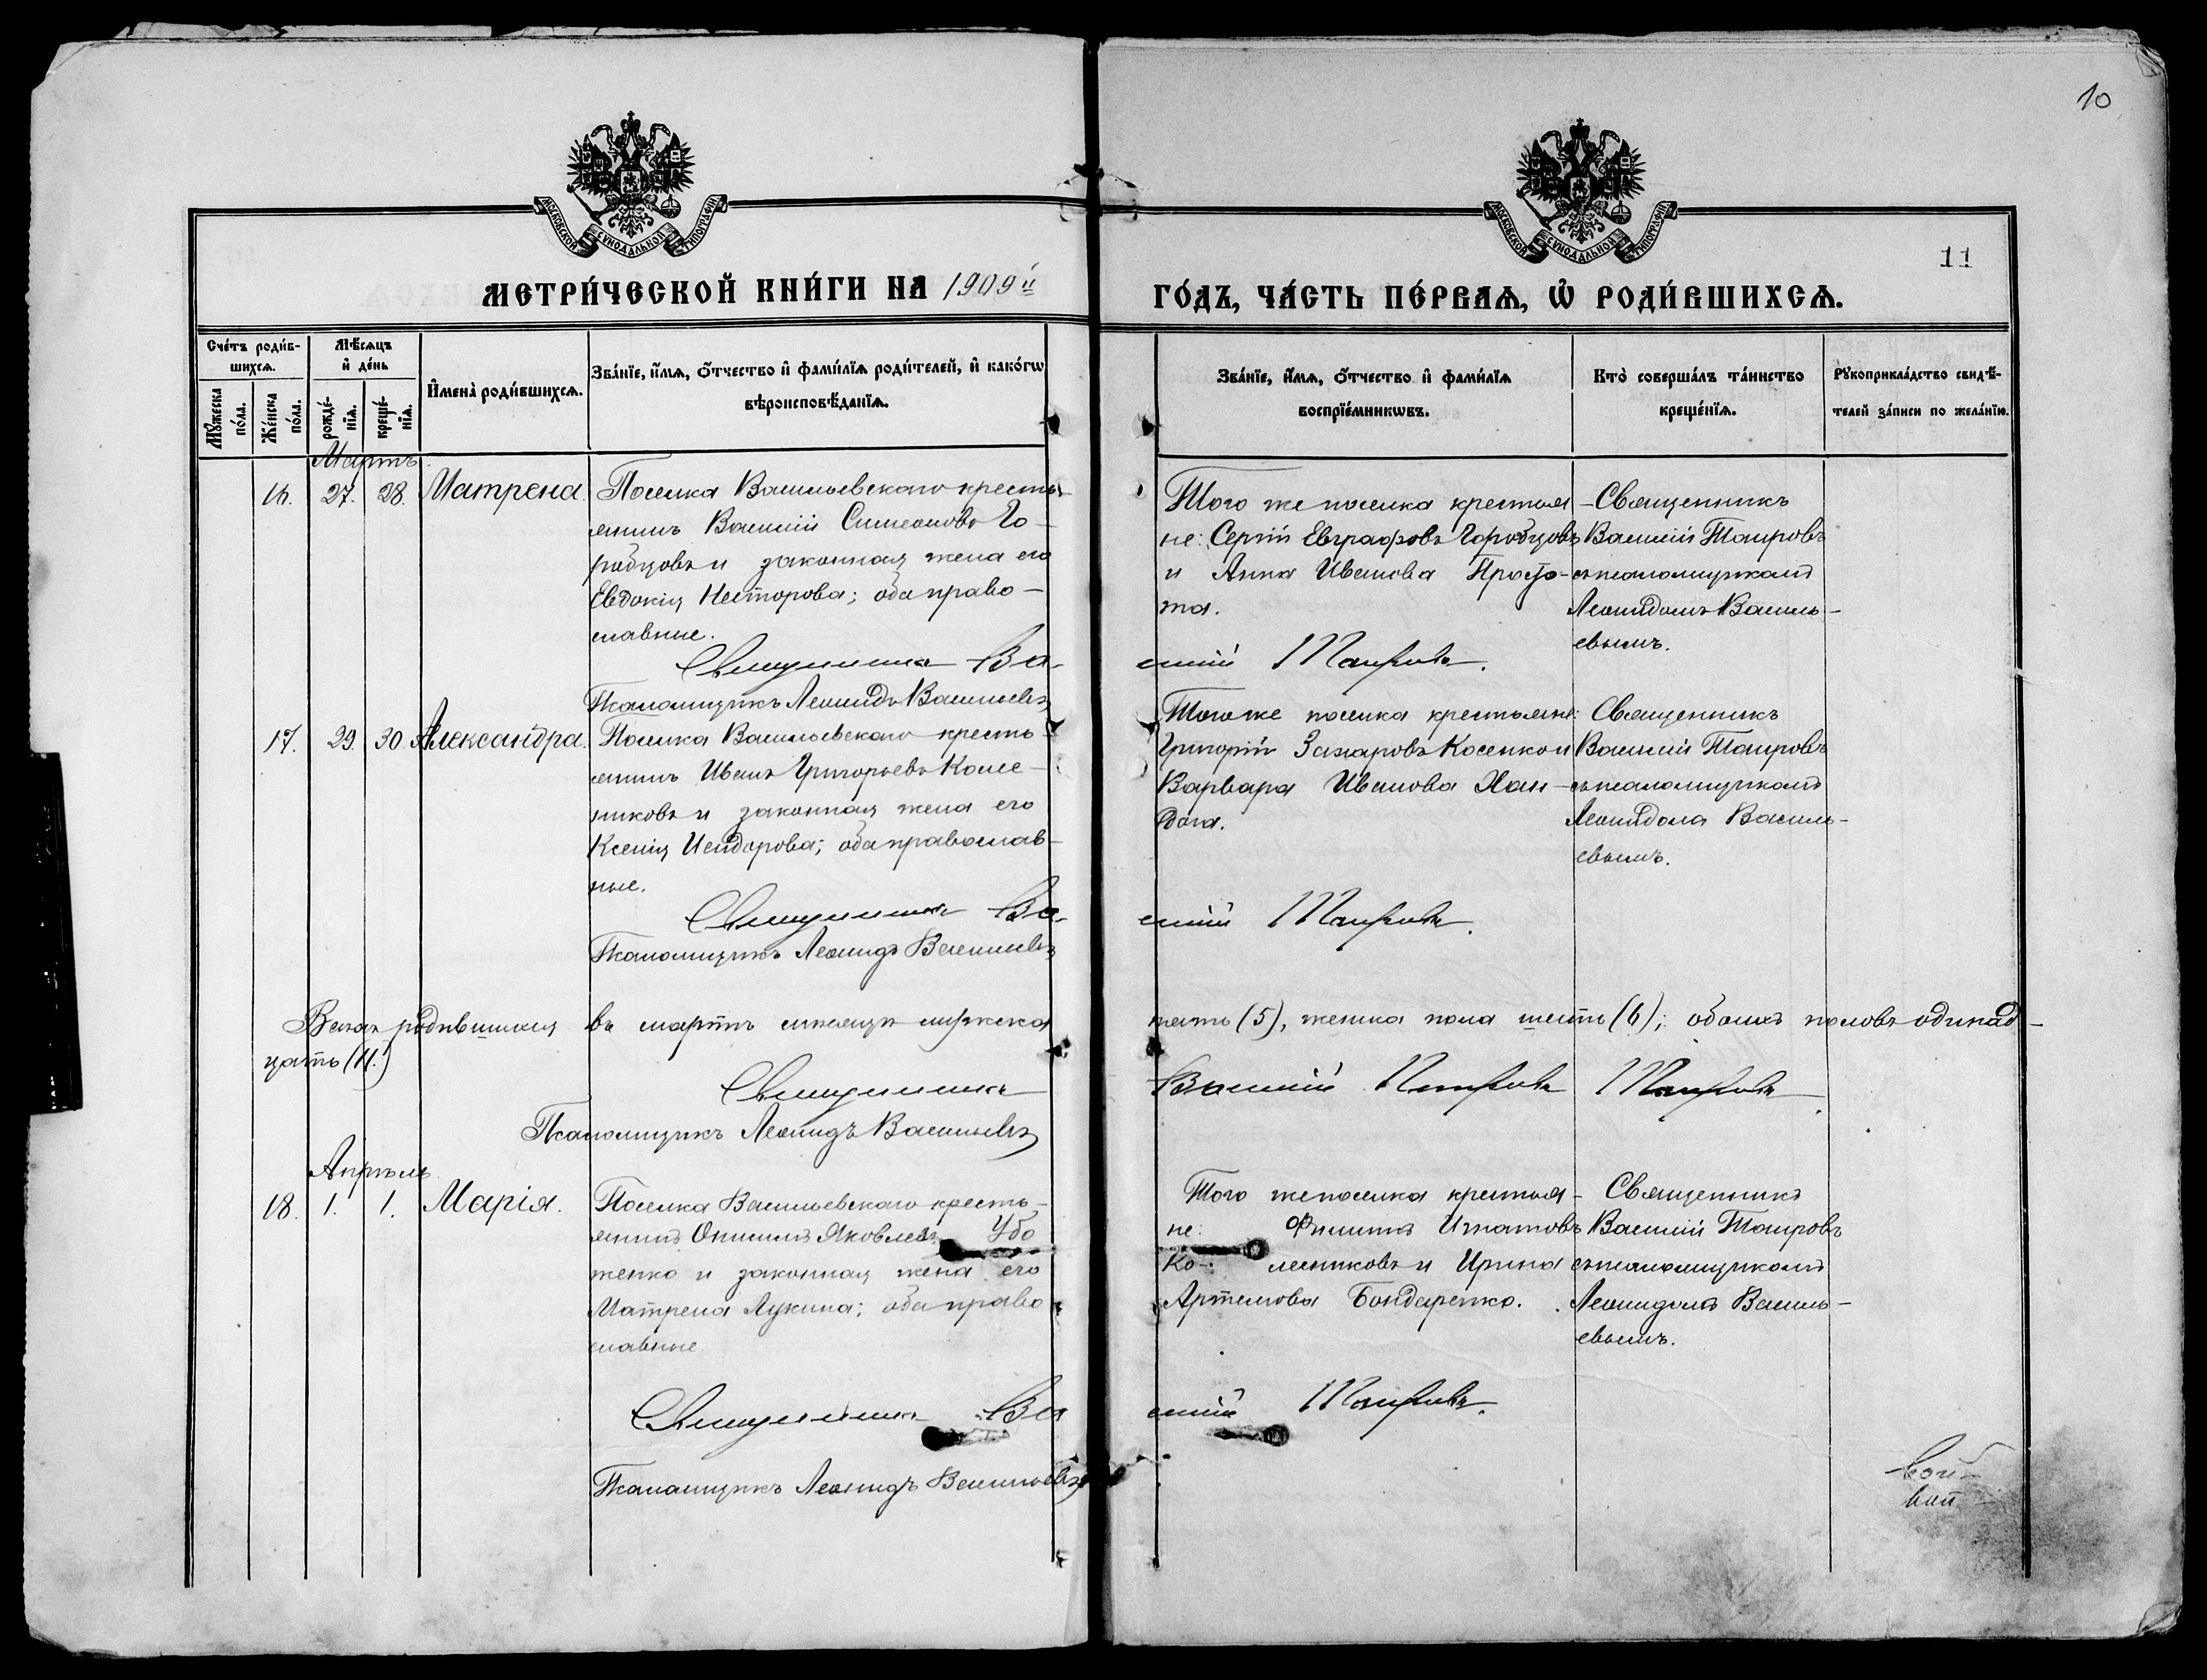 10
МОСКОВСКОЙ СѴНОДАЛЬНОЙ ТИПОГРАФІИ
МОСКОВСКОЙ СѴНОДАЛЬНОЙ ТИПОГРАФІИ
11
МЕТРИ́ЧЕСКОЙ КНИ́ГИ НА 1909й
ГО́ДЪ, ЧА́СТЬ ПЕ́РВАѦ, Ѡ҆ РОДИ́ВШИХСѦ.
Сче́тъ роди́в-
шихсѧ.
Мꙋ́жеска по́ла.
Же́нска по́ла.
Мѣ́сѧцъ
и҆ де́нь
рожде́-
нїѧ.
креще́-
нїѧ.
И҆мена̀ роди́вшихсѧ.
Зва́нїе, и҆́мѧ, ѻ҆́тчество и҆ фами́лїѧ роди́телей, и҆ како́гѡ
вѣроисповѣ́данїѧ.
Зва́нїе, и҆́мѧ, ѻ҆́тчество и҆ фами́лїѧ
воспрїе́мникѡвъ.
Кто̀ соверша́лъ та́инство
креще́нїѧ.
Рꙋкоприкла́дство свидѣ́-
телей за́писи по жела́нїю.
Мартъ.
16. 27. 28. Матрена.
Поселка Васильевскаго кресть-
янинъ Василій Симеоновъ Го-
робцовъ и законная жена его
Евдокія Несторова; оба право-
славные.
Священникъ Ва-
Псаломщикъ Леонидъ Васильевъ
Того же поселка крестья-
не: Сергій Евграфовъ Горобцовъ
и Анна Иванова Просто-
та.
силій Таировъ.
Священникъ
Василій Таировъ
съ псаломщикомъ
Леонидомъ Василь-
евымъ.
17. 29. 30. Александра.
Поселка Васильевскаго кресть-
янинъ Иванъ Григорьевъ Колес-
никовъ и законная жена его
Ксенія Исидорова; оба православ-
ные.
Священникъ Ва-
Псаломщикъ Леонидъ Васильевъ
Того же поселка крестьяне:
Григорій Захаровъ Косенко и
Варвара Иванова Хан-
дога.
силій Таировъ.
Священникъ
Василій Таировъ
съ псаломщикомъ
Леонидомъ Василь-
евымъ.
Всего родившихся въ мартѣ мѣсяцѣ мужска
пять (5), женска пола шесть (6); обоихъ половъ одинад-
цать (11.)
Священникъ
Василій Таировъ Таировъ.
Псаломщикъ Леонидъ Васильевъ
Апрѣль
18. 1. 1. Марія.
Поселка Васильевскаго кресть-
янинъ Онисимъ Яковлевъ Убо
женко и законная жена его
Матрена Лукина; оба право
славные
Священникъ Ва
Псаломщикъ Леонидъ Васильевъ
Того же поселка крестья-
не: Филиппъ Игнатовъ
Ко- лесниковъ и Ирина
Артемова Бондаренко.
силій Таировъ.
Священникъ
Василій Таировъ
съ псаломщикомъ
Леонидомъ Василь-
евымъ.